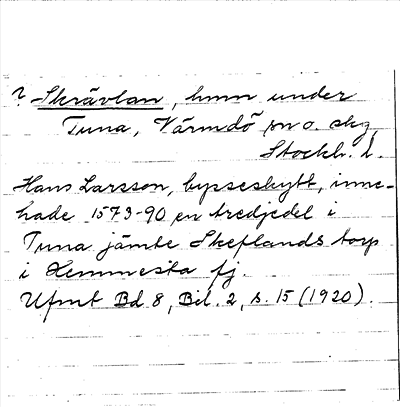 ? Skrävlan, hmn under
Tuna, Värmdö sn o. skg,
Stockh. l.
Hans Larsson, bysseskytt, inne-
hade 1573-90 en tredjedel i
Tuna jämte Skeflands torp
i Hemmesta fj.
Ufmt Bd 8, Bil. 2, s. 15 (1920).